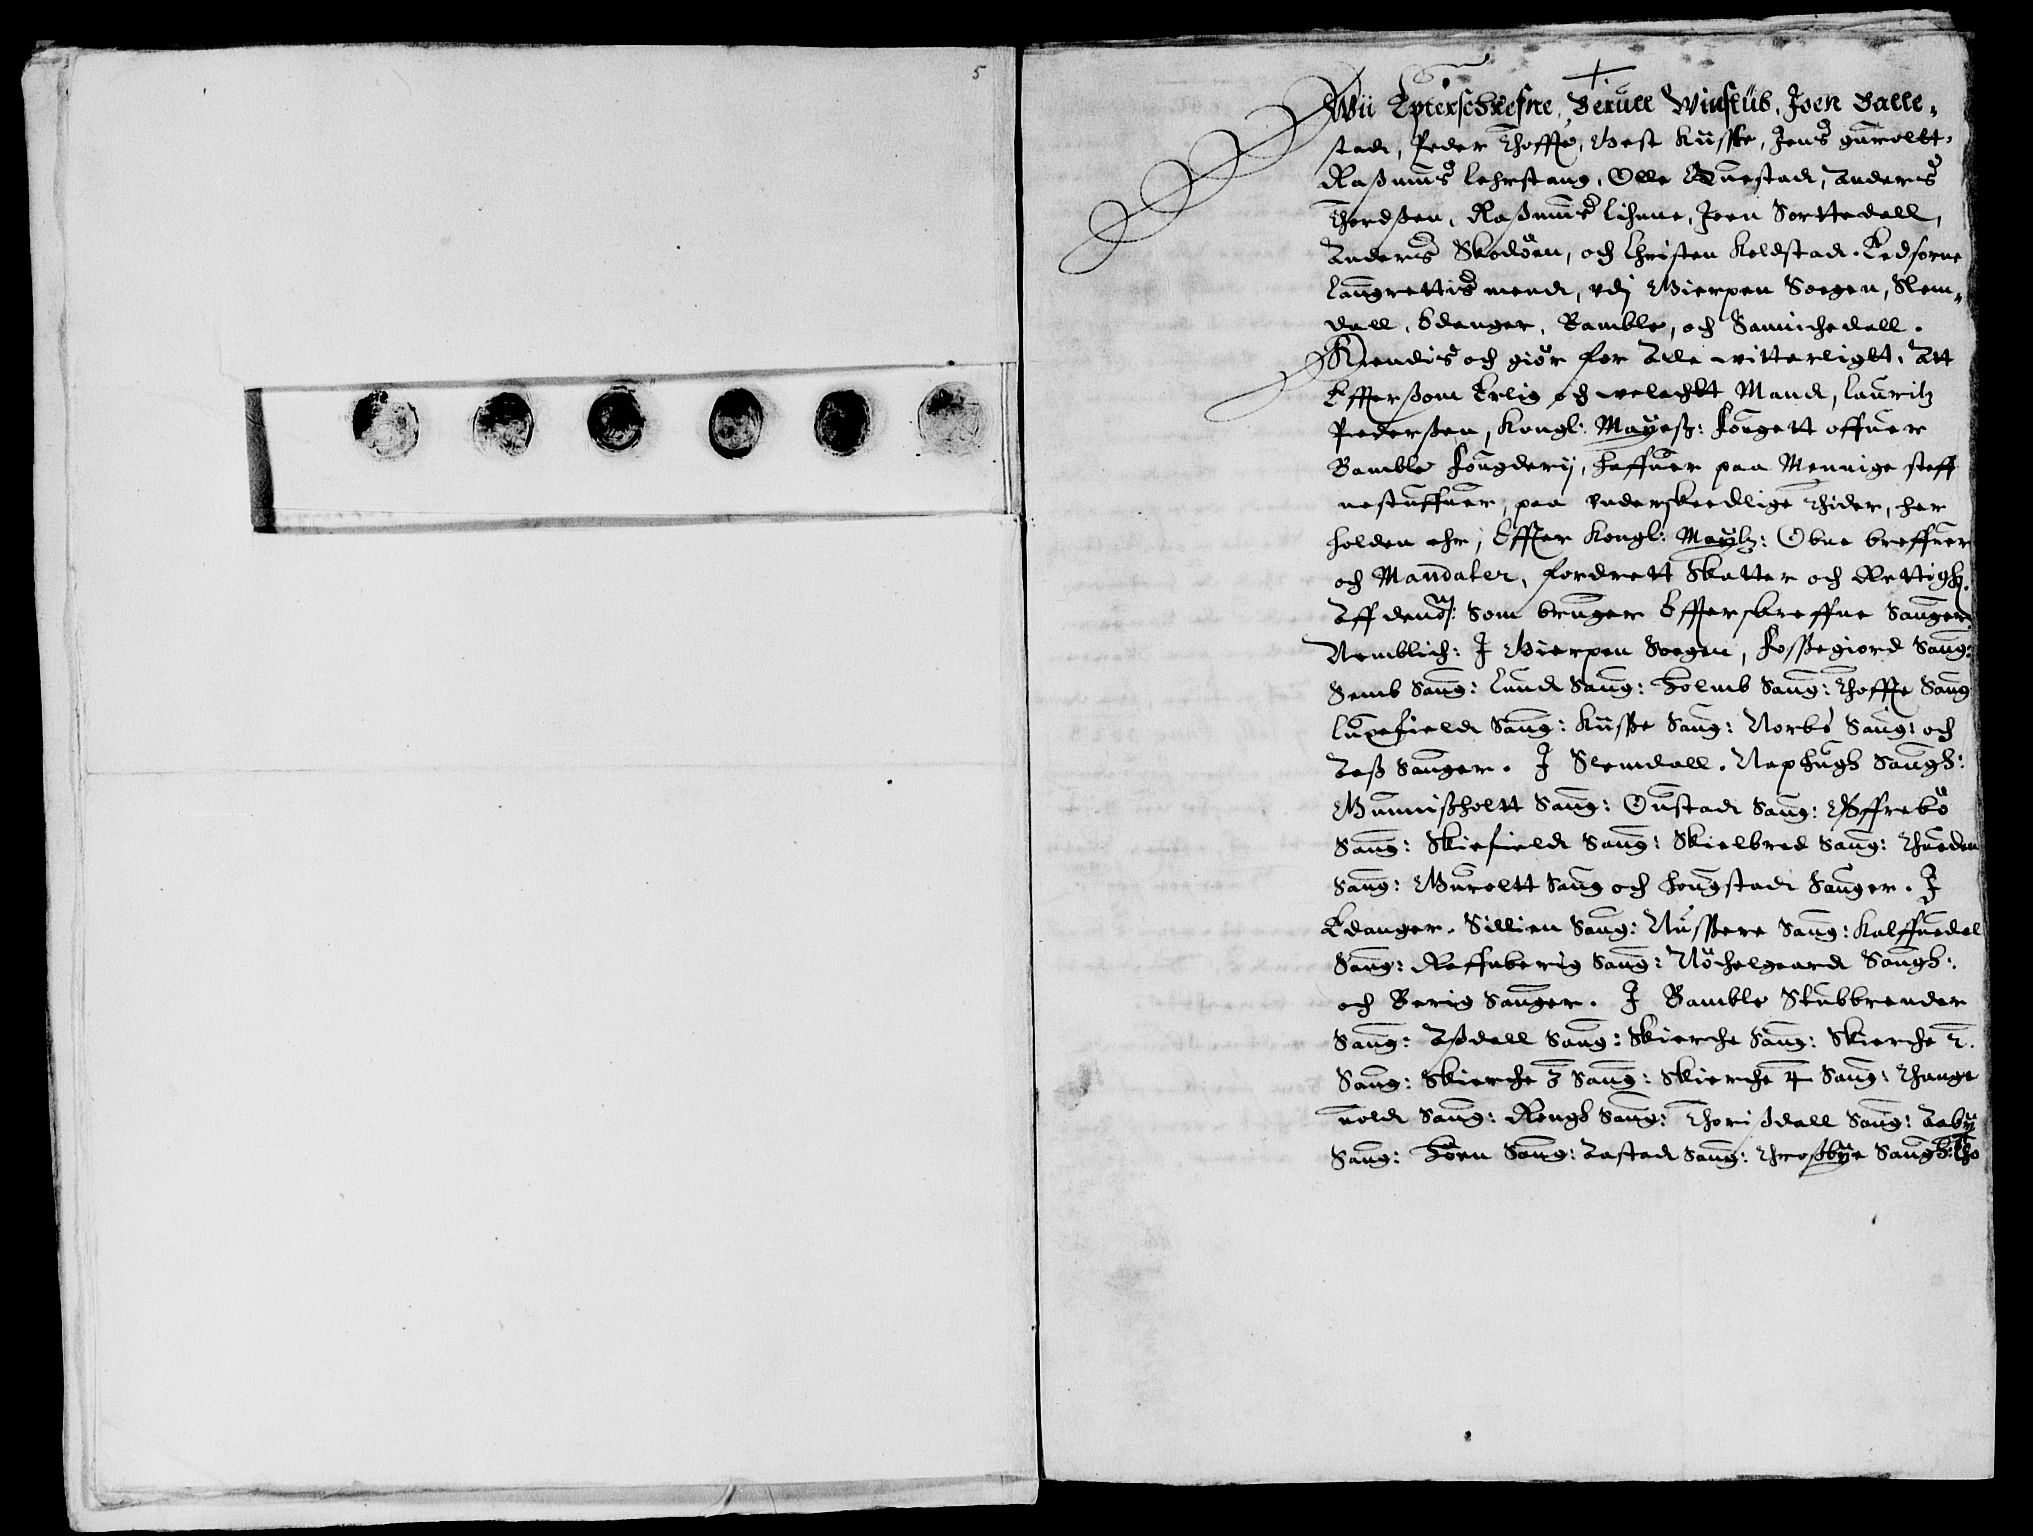 5
Wii Epterschrefne, Beruell Winstub, Joen Balle,
stadt, Peder Thoffte, Best Kiisse, Jens gurolt,
Rasmus Lehrstang, Olle Tuestadt, Anders
Thordsen, Rasmus Lihune, Joen Sorttedall,
Anders Skodöen, och Christen Koldstadt. Eedsorne
Laugrettis mendt, vdj Gierpen Soegen, Slem,
dall, Edanger, Bamble, och Sannichedall.
Kiendis och giör for Alle witterligtt, Att
Effterssom Erlig och welachtt Mandt, Lauritz
Pedersen, Kongl: Mayest: Fougett offuer
Bamble Fougderij, haffuer paa Mennige steff
nestuffuer, paa underskeedlige Thider, her
holden ehr, Effter Kongl: Maytz: Obne breffuer
och Mandater, fordrett Skatter och Rettigh.
Aff dennom: Som bruger Effterskreffne Sauger.
Nemblich: J Gierpen Soegen, Fossegiord Saug:
Semb Saug: Lundt Saug: Holmb Saug: Thoffte Saug
Luxefieldt Saug: Kiisse Saug: Norbe Saug: och
Aass Sauger. J Slemdall. Naphugh Saugh:
Gunnissholtt Saug: Oustadt Saug: Öffrebö
Saug: Skiefieldt Saug: Skielbred Saug: Thueden
Saug: Guroltt Saug och Hougstadt Sauger. J
Edanger. Sillien Saug: Nussere Saug: Kalffuedal
Saug: Reffuberig Saug: Nöchelgaardt Saugh:
och Berig Sauger. J Bamble Stubbrender
Saug: Assdall Saug: Skierche Saug: Skierche 2.
Saug: Skierche 3 Saug: Skierche 4 Saug: Thange
uoldt Saug: Rough Saug: Thorissdall Saug: Aaby
Saug: Hoen Saug: Aastadt Saug: Throsbye Saugh: Tho